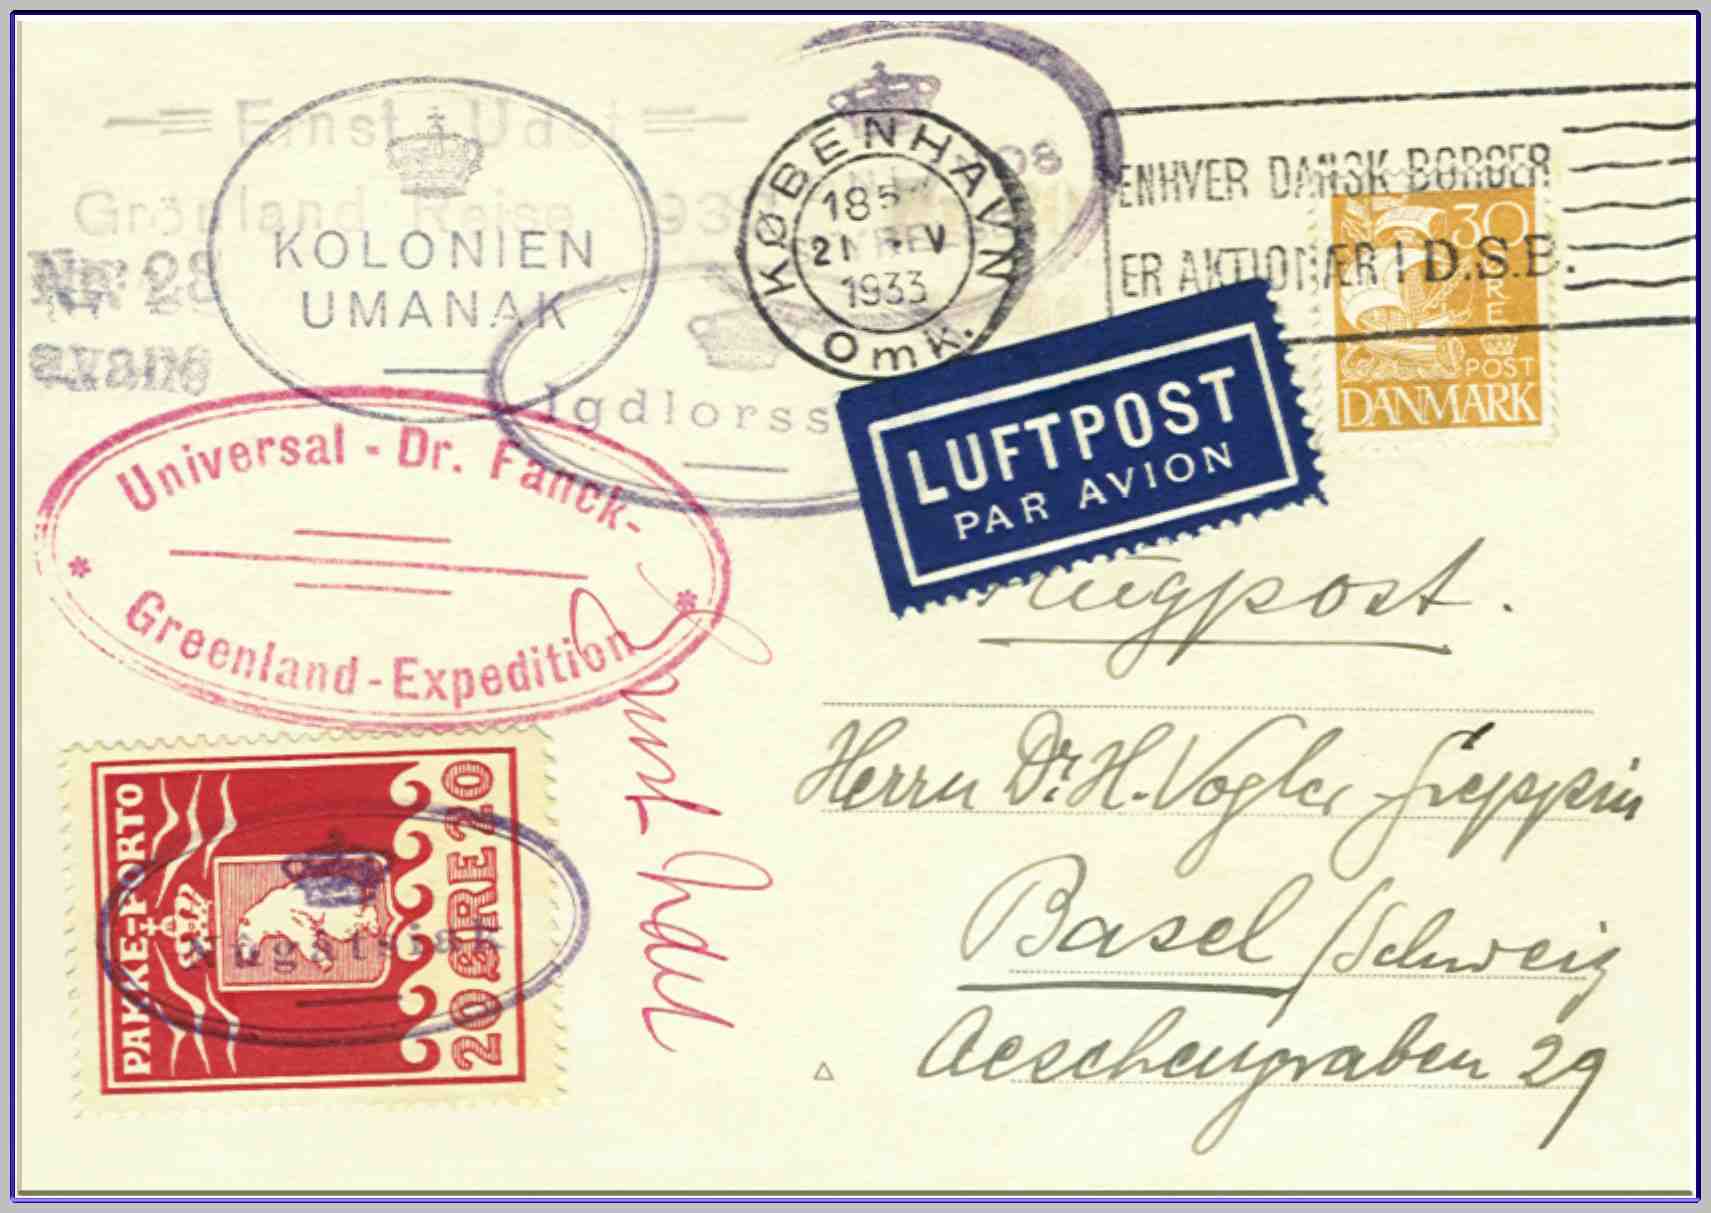 Ernst Udet
Grönland Reise 193
Nr. 28
KOLONIEN
UMANAK
Igdlorss
KØBENHAVN
185
21 V
1933
Omk.
ENHVER DANSK BORGER
ER AKTIONÆR I D.S.B.
30
ØRE
POST
DANMARK
LUFTPOST
PAR AVION
Universal - Dr. Fanck-
Greenland - Expedition
Flugpost.
Ernst Udet
Herrn Dr. H. Vogler
Basel / Schweiz
Aeschengraben 29
PAKKE-PORTO
20 ØRE 20
Nûgâtsiak